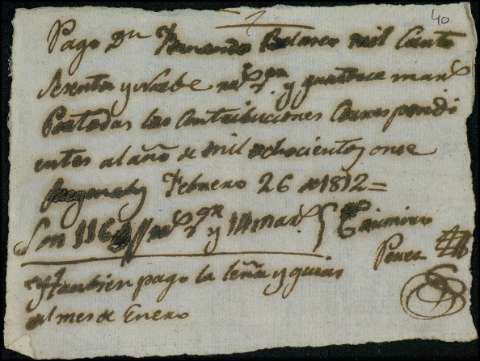 40
Pago Dn Fernando mil Ciento
sesenta y Nuebe rs vn y quatorce mars
Por todas las Contribuciones Correspondi
entes al año de mil ochocientos onse
Febrero 26 de 1812=
Son 1169 rs vn y 14 mars Casimiro
Perez
Y tambien pago la leña y guias
al mes de Enero